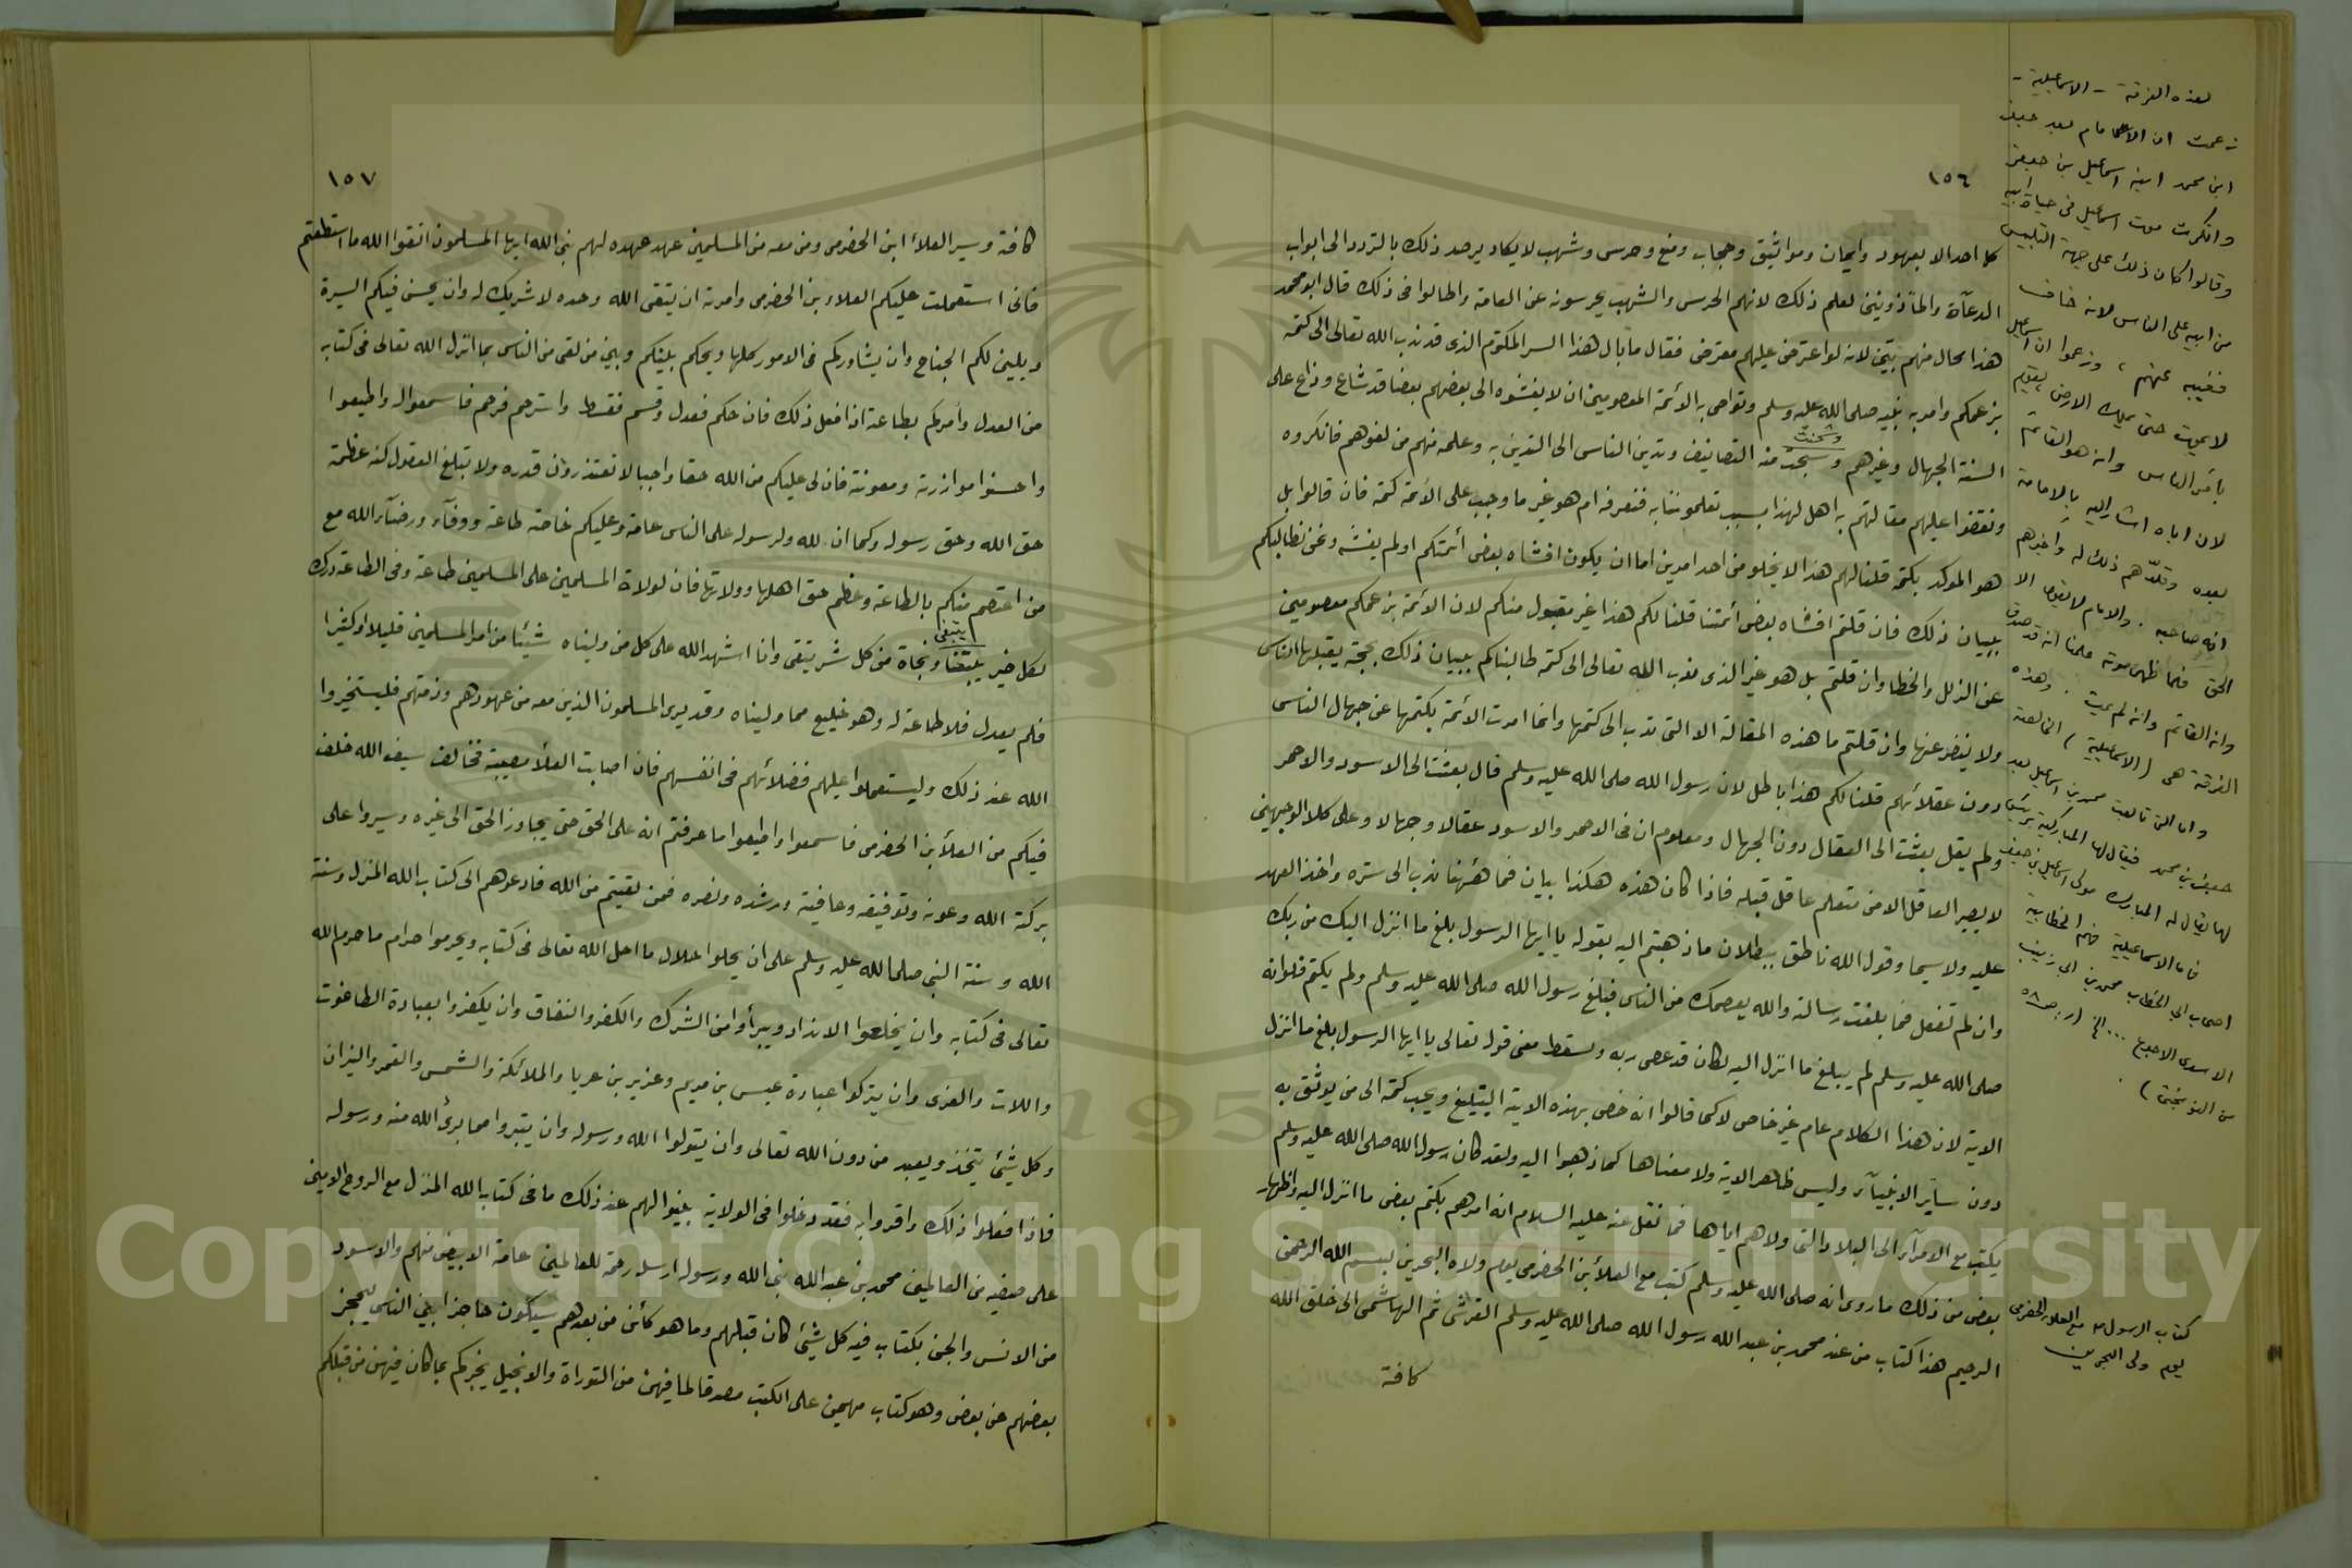 ١٥٦
كل احد الا بعهود وايمان ومواثيق وحجاب ومنع وحرس وشهب لا يكاد يرصد ذلك بالتردد الى ابواب
الدعآة والمأذونين لعلم ذلك لانهم الحرس والشهب يحرسونه عن العامة واطالوا فى ذلك قال ابو محمد
هذا محال منهم بيّن لانه لو اعترض عليهم معترض فقال ما بال هذا السر المكتوم الذى قد ندب الله تعالى الى كتمه
بزعمكم وامر به نبيه صلى الله عليه وسلم وتواصى به الائمة المعصومين ان لا يفشوه الى بعضهم بعضا قد شاع وذاع على
السنة الجهال وغيرهم وسحبت منه التصانيف وتدين الناس الى التدين به وعلمه منهم من لغوهم فانكروه
ونقضوا عليهم مقالتهم به اهل لهذا بسبب تعلموننا به فنعرفه ام هو غير ما وجب على الائمة كتمه فان قالوا بل
هو الموكد بكتمه قلنا لهم هذا لا يخلو من احد امرين اما ان يكون افشاه بعض أئمتكم او لم يفشه ونحن نطالبكم
ببيان ذلك فان قلتم افشاه بعض ائمتنا قلنا لكم هذا غير مقبول منكم لان الائمة بزعمكم معصومين
عن الزلل والخطا وان قلتم بل هو غير الذى ندب الله تعالى الى كتمه طالبناكم ببيان ذلك بحجة يقبلها الناس
ولا ينفر عنها وان قلتم ما هذه المقالة الا التى ندب الى كتمها وانما امرت الائمة بكتمها عن جهال الناس
دون عقلائهم قلنا لكم هذا باطل لان رسول الله صلى الله عليه وسلم قال بعثت الى الاسود والاحمر
ولم يقل بعثت الى العقال دون الجهال ومعلوم ان فى الاحمر والاسود عقالا وجهالا وعلى كلا الوجهين
لا يصير العاقل الا من متعلم عاقل قبله فاذا كان هذه هكذا بيان فما هٔهنا ندب الى ستره واخذ العهد
عليه ولا سيما وقول الله ناطق ببطلان ما ذهبتم اليه بقوله يا ايها الرسول بلغ ما انزل اليك من ربك
وان لم تفعل فما بلغت رسالته والله يعصمك من الناس فبلغ رسول الله صلى الله عليه وسلم ولم يكتم فلو انه
صلى الله عليه وسلم لم يبلغ ما انزل اليه لكان قد عصى ربه ولسقط معنى قوله تعالى يا ايها الرسول بلغ ما انزل
الاية لان هذا الكلام عام غير خاص لا كما قالوا انه خص بهذه الاية التبليغ ويجب كتمه الى من يوثق به
دون ساير الانبيآء وليس ظاهر الاية ولا معناها كما ذهبوا اليه ولقد كان رسول الله صلى الله عليه وسلم
يكتب مع الامرآء الى البلاد التى ولاهم اياها فما نقل عنه عليه السلام انه امرهم بكتم بعض ما انزل اليه واظهار
بعض من ذلك ما روى انه صلى الله عليه وسلم كتب مع العلأ بن الحضرمى يوم ولاه البحرين بسم الله الرحمن
الرحيم هذا كتاب من عند محمد بن عبد الله رسول الله صلى الله عليه وسلم القرشى ثم الهاشمى الى خلق الله
كافة
لهذه الفرقة - الاسماعيلية -
زعمت ان الامام بعد جعفر
ابن محمد ابنه اسماعيل بن جعفر
وانكرت موت اسماعيل فى حياة ابيه
وقالوا كان ذلك على جهة التلبيس
من ابيه على الناس لانه خاف
فغيبه عنهم ، وزعموا ان اسماعيل
لا يموت حتى يملك الارض يقوم
بأمر الناس وانه هو القائم
لان اباه اشار اليه بالامامة
بعده وقلدهم ذلك له واخبرهم
انه صاحبه . والامام لا يقول الا
الحق فلما ظهر موته علمنا انه قد صدق
وانه القائم وانه لم يمت . وهذه
الفرقة هى (الاسماعيلية) الخالصة
واما التى قالت محمد بن اسماعيل بعد
جعفر بن محمد فيقال لها المباركية برئيس
لها يقال له المبارك مولى اسماعيل بن جعفر
فاما الاسماعيلية فهم الخطابية
اصحاب ابي الخطاب محمد بن ابى زينب
الاسدى الاجدع ... الخ (ر. ص٥٨
من النوبختى) .
كتاب الرسول م مع العلاء الحضرمى
يوم ولى البحرين
١٥٧
كافة وسير العلأ ابن الحضرمى ومن معه من المسلمين عهد عهده لهم نبى الله ايها المسلمون اتقوا الله ما استطعتم
فانى استعملت عليكم العلاء بن الحضرمى وامرته ان يتقى الله وحده لا شريك له وان يحسن فيكم السيرة
ويلين لكم الجناح وان يشاوركم فى الامور كلها ويحكم بينكم وبين من لقى من الناس بما انزل الله تعالى فى كتابه
من العدل وآمركم بطاعته اذا فعل ذلك فان حكم فعدل وقسم فقسط واسترحم فرحم فاسمعوا له واطيعوا
واحسنوا موازرته ومعونته فان لى عليكم من الله حقا واجبا لا تقتدرون قدره ولا تبلغ العقول كنه عظمة
حق الله وحق رسوله وكما ان لله ولرسوله على الناس عامة وعليكم خاصة طاعة ووفآء ورضآء الله مع
من اعتصم منكم بالطاعة وعظم حق اهلها وولاتها فان لولاة المسلمين على المسلمين طاعة وفى الطاعة درك
لكل خير يبتغى ونجاة من كل شر يتقى وانا اشهد الله على كل من وليناه شيئا من امر المسلمين قليلا او كثيرا
فلم يعدل فلا طاعة له وهو خليع مما وليناه وقد يرى المسلمون الذين معه من عهودهم وذمتهم فليستخيروا
الله عند ذلك وليستعملوا عليهم فضلائهم فى انفسهم فان اصابت العلأ مصيبة فخالف سيف الله خلف
فيكم من العلأ بن الحضرمى فاسمعوا واطيعوا ما عرفتم انه على الحق حتى يجاوز الحق الى غيره وسيروا على
بركة الله وعونه وتوفيقه وعافيته ورشده ونصره فمن لقيتم من الله فادعوهم الى كتاب الله المنزل وسنة
الله وسنة النبى صلى الله عليه وسلم على ان يحلوا حلال ما احل الله تعالى فى كتابه ويحرموا حرام ما حرم الله
تعالى فى كتابه وان يخلعوا الانداد ويبرأوا من الشرك والكفر والنفاق وان يكفروا بعبادة الطاغوت
واللات والعزى وان يتركوا عبادة عيسى بن مريم وعزير بن عربا والملائكة والشمس والقمر والنيران
وكل شيئ يتخذ ويعبد من دون الله تعالى وان يتولوا الله ورسوله وان يتبروا مما برئ الله منه ورسوله
فاذا فعلوا ذلك واقروا به فقد دخلوا فى الولاية بينوا لهم عند ذلك ما فى كتاب الله المنزل مع الروح الامين
على صفيه من العالمين محمد بن عبد الله نبى الله ورسوله ارسله رحمة للعالمين عامة الابيض منهم والاسود
من الانس والجن بكتاب فيه كل شيئ كان قبلهم وما هو كأئن من بعدهم سيكون حاجزا بين الناس ليحجز
بعضهم عن بعض وهو كتاب مهيمن على الكتب مصدقا لما فيهن من التوراة والانجيل يخبركم بما كان فيهن من قبلكم
Copyright © King Saud University
195